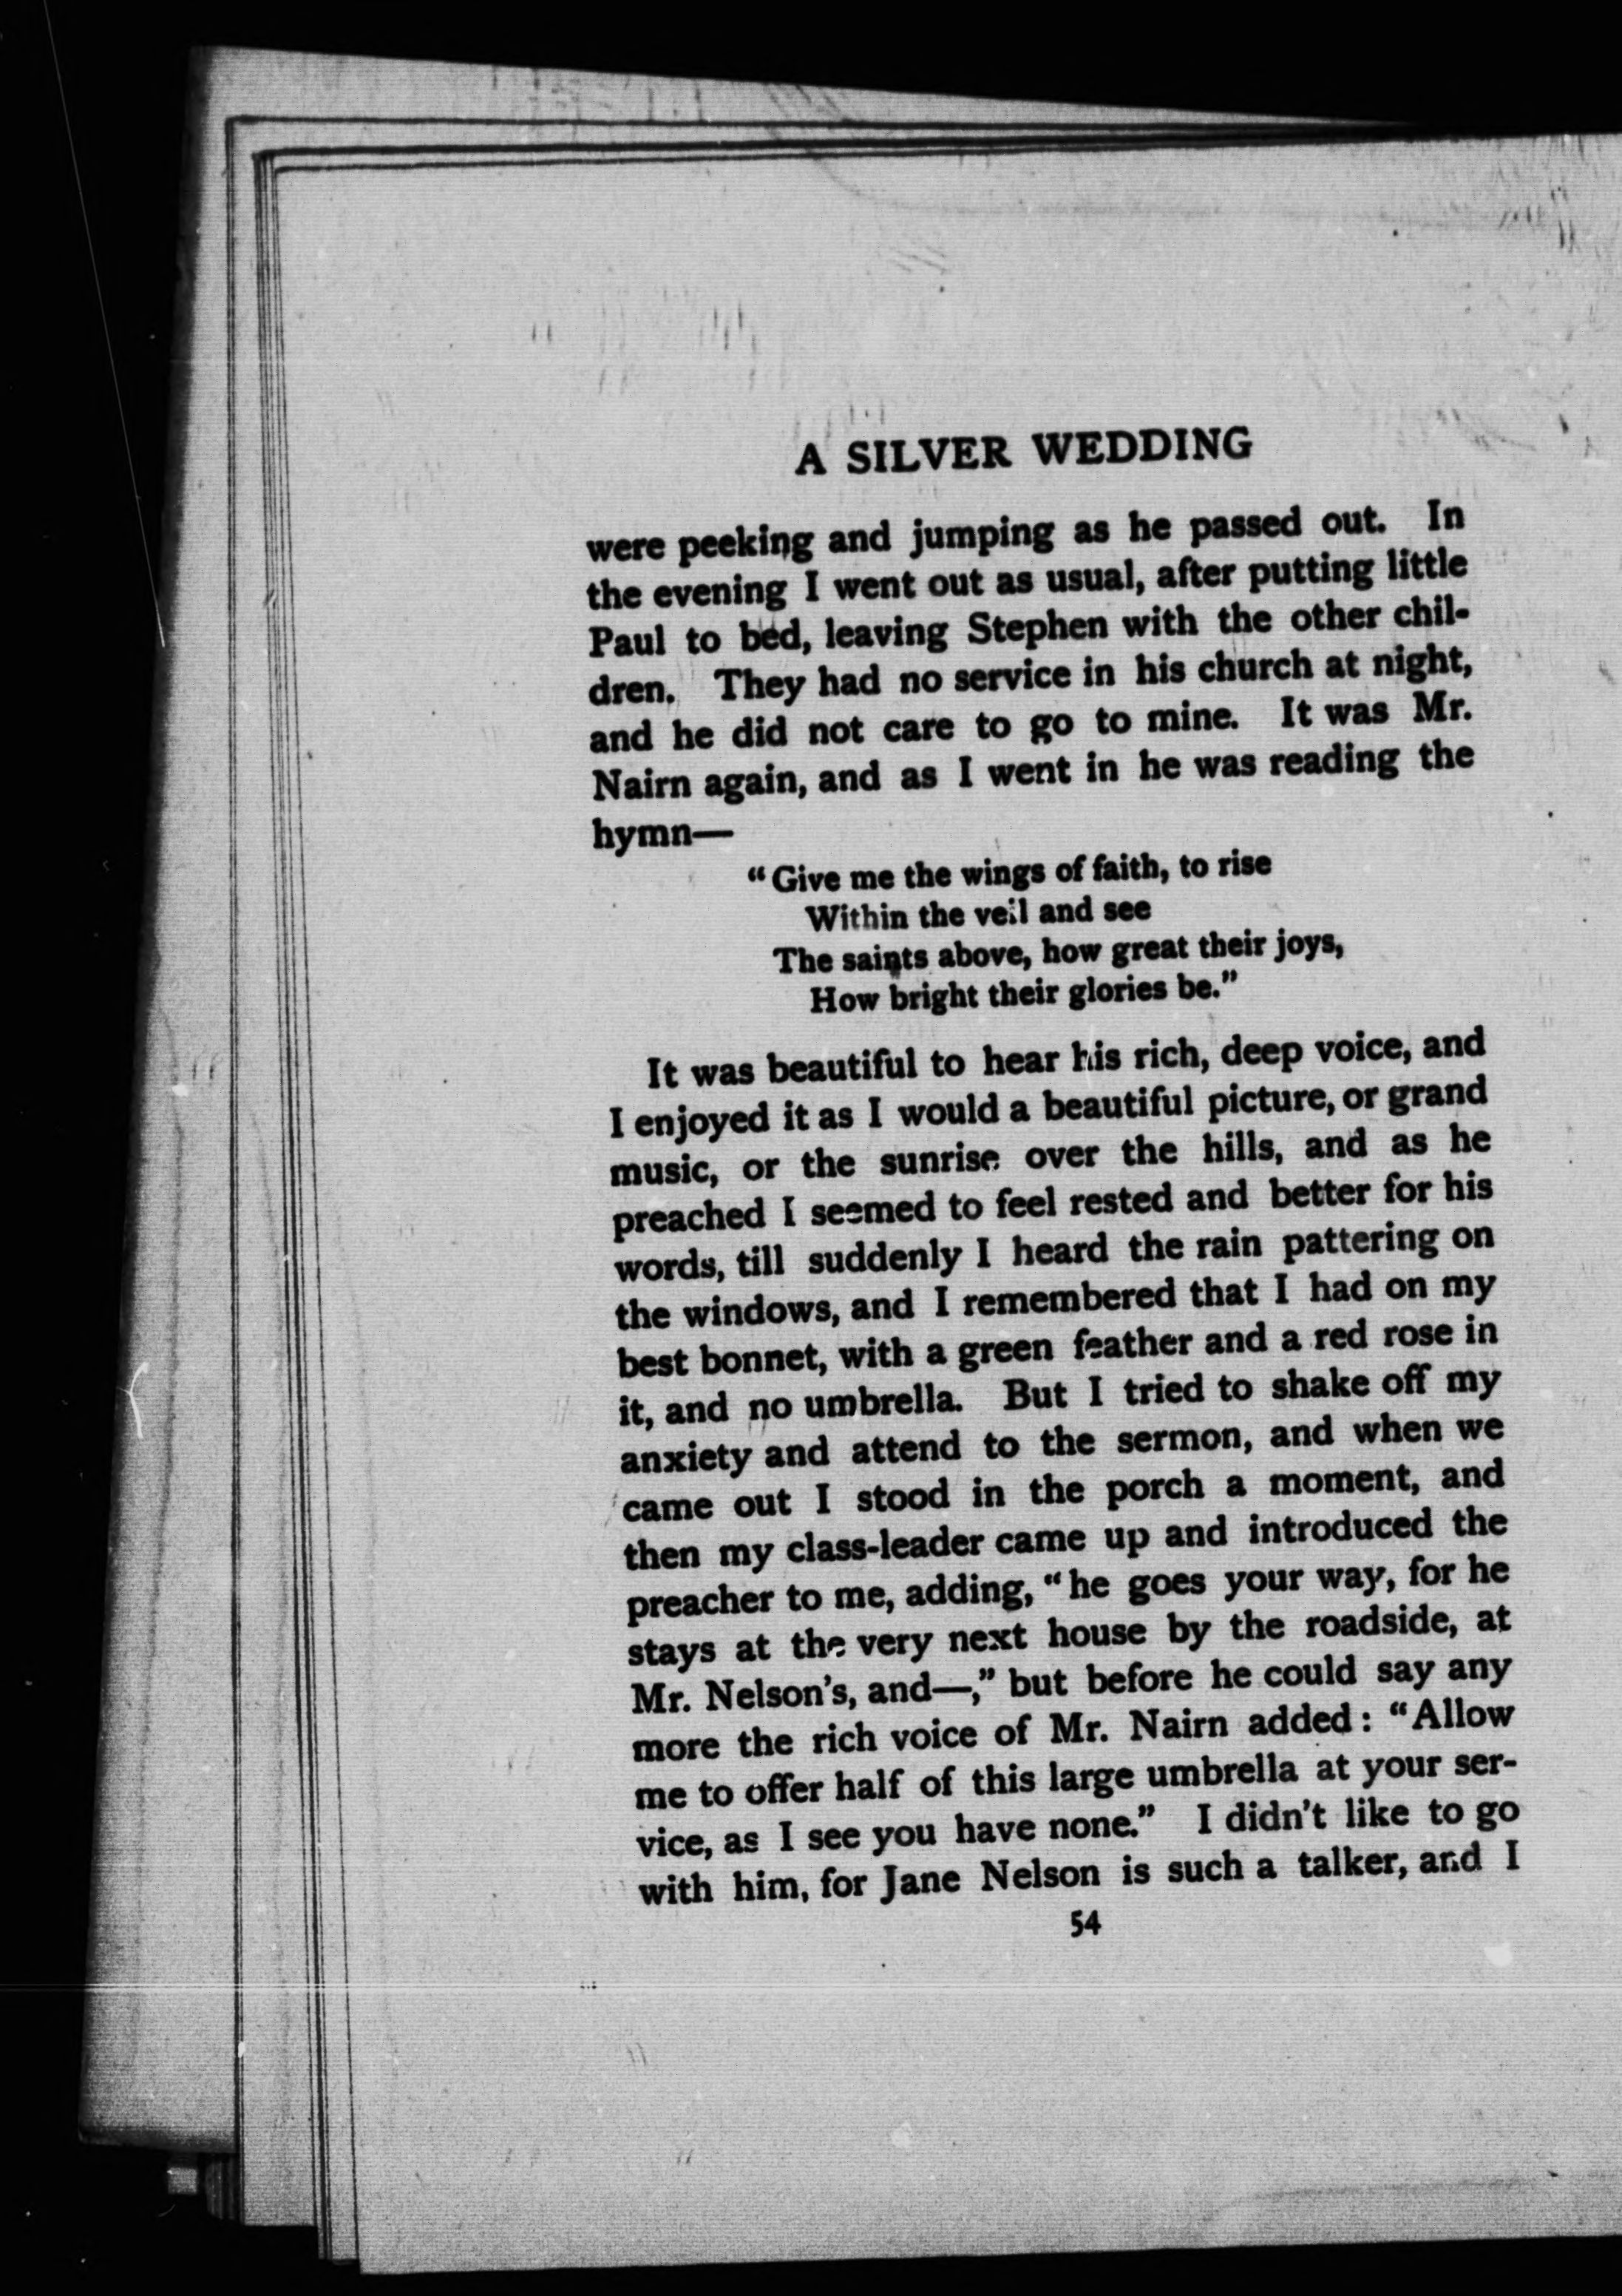 A SILVER WEDDING
were peeking and jumping as he passed out. In
the evening I went out as usual, after putting little
Paul to bed, leaving Stephen with the other chil-
dren. They had no service in his church at night,
and he did not care to go to mine. It was Mr.
Nairn again, and as I went in he was reading the
hymn—
"Give me the wings of faith, to rise
Within the veil and see
The saints above, how great their joys,
How bright their glories be."
It was beautiful to hear his rich, deep voice, and
I enjoyed it as I would a beautiful picture, or grand
music, or the sunrise over the hills, and as he
preached I seemed to feel rested and better for his
words, till suddenly I heard the rain pattering on
the windows, and I remembered that I had on my
best bonnet, with a green feather and a red rose in
it, and no umbrella. But I tried to shake off my
anxiety and attend to the sermon, and when we
came out I stood in the porch a moment, and
then my class-leader came up and introduced the
preacher to me, adding, "he goes your way, for he
stays at the very next house by the roadside, at
Mr. Nelson's, and—," but before he could say any
more the rich voice of Mr. Nairn added: "Allow
me to offer half of this large umbrella at your ser-
vice, as I see you have none." I didn't like to go
with him, for Jane Nelson is such a talker, and I
54